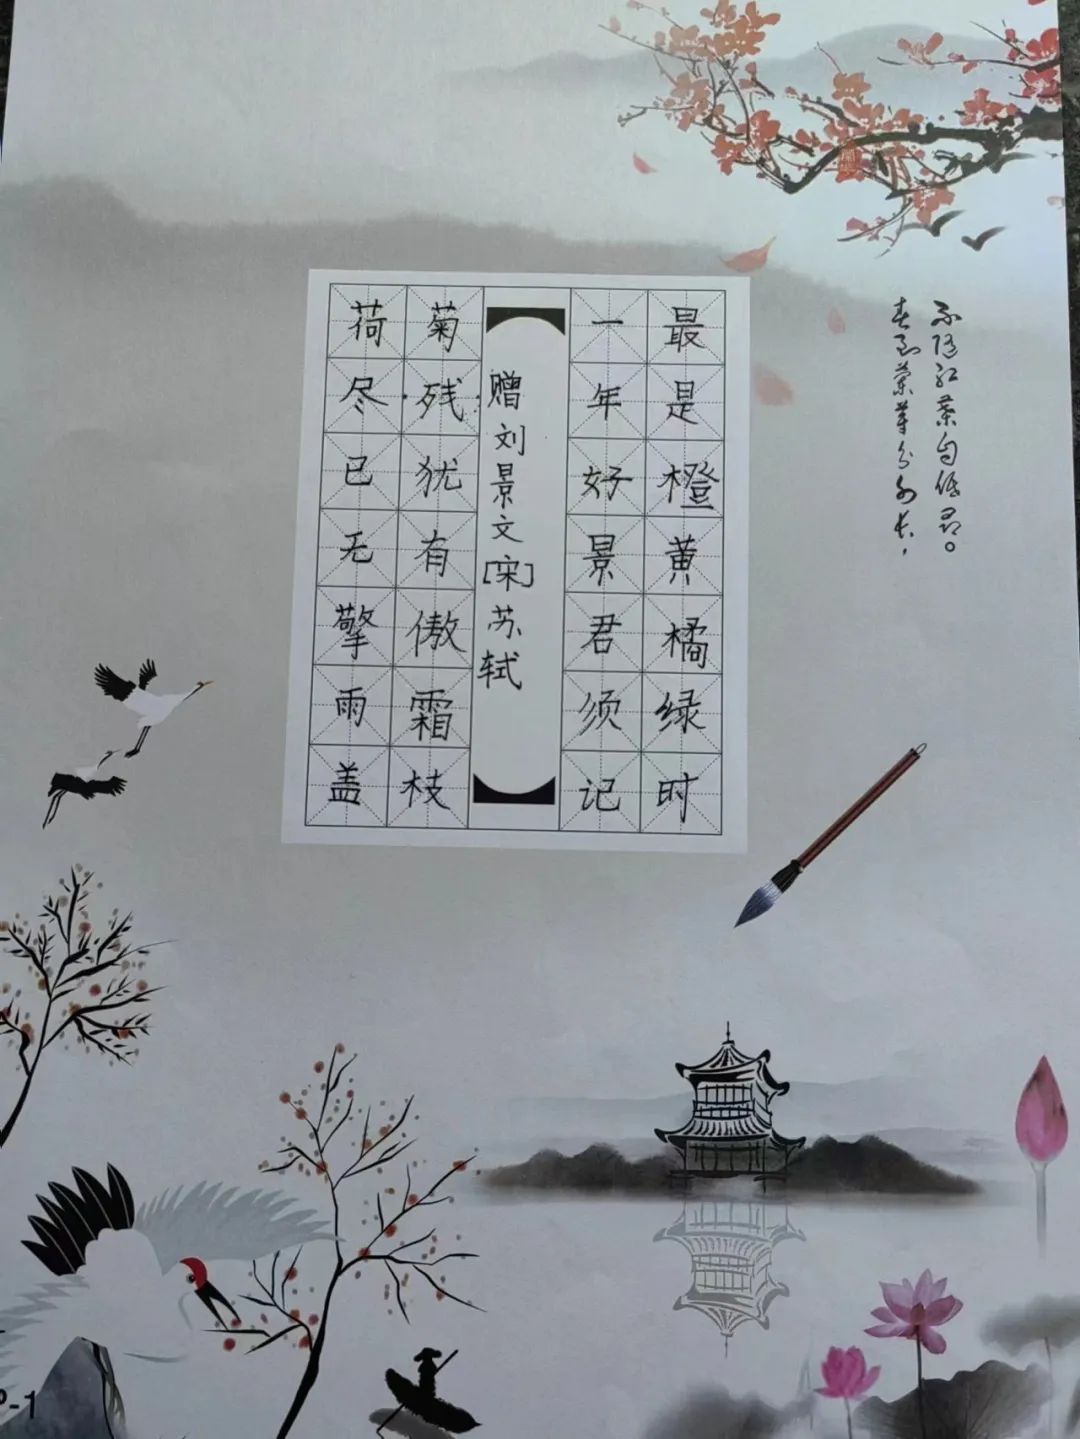 荷尽已无擎雨盖
菊残犹有傲霜枝
赠刘景文[宋]苏轼
一年好景君须记
最是橙黄橘绿时
春到兰芽分外长，
不随红叶自低昂。
P-1